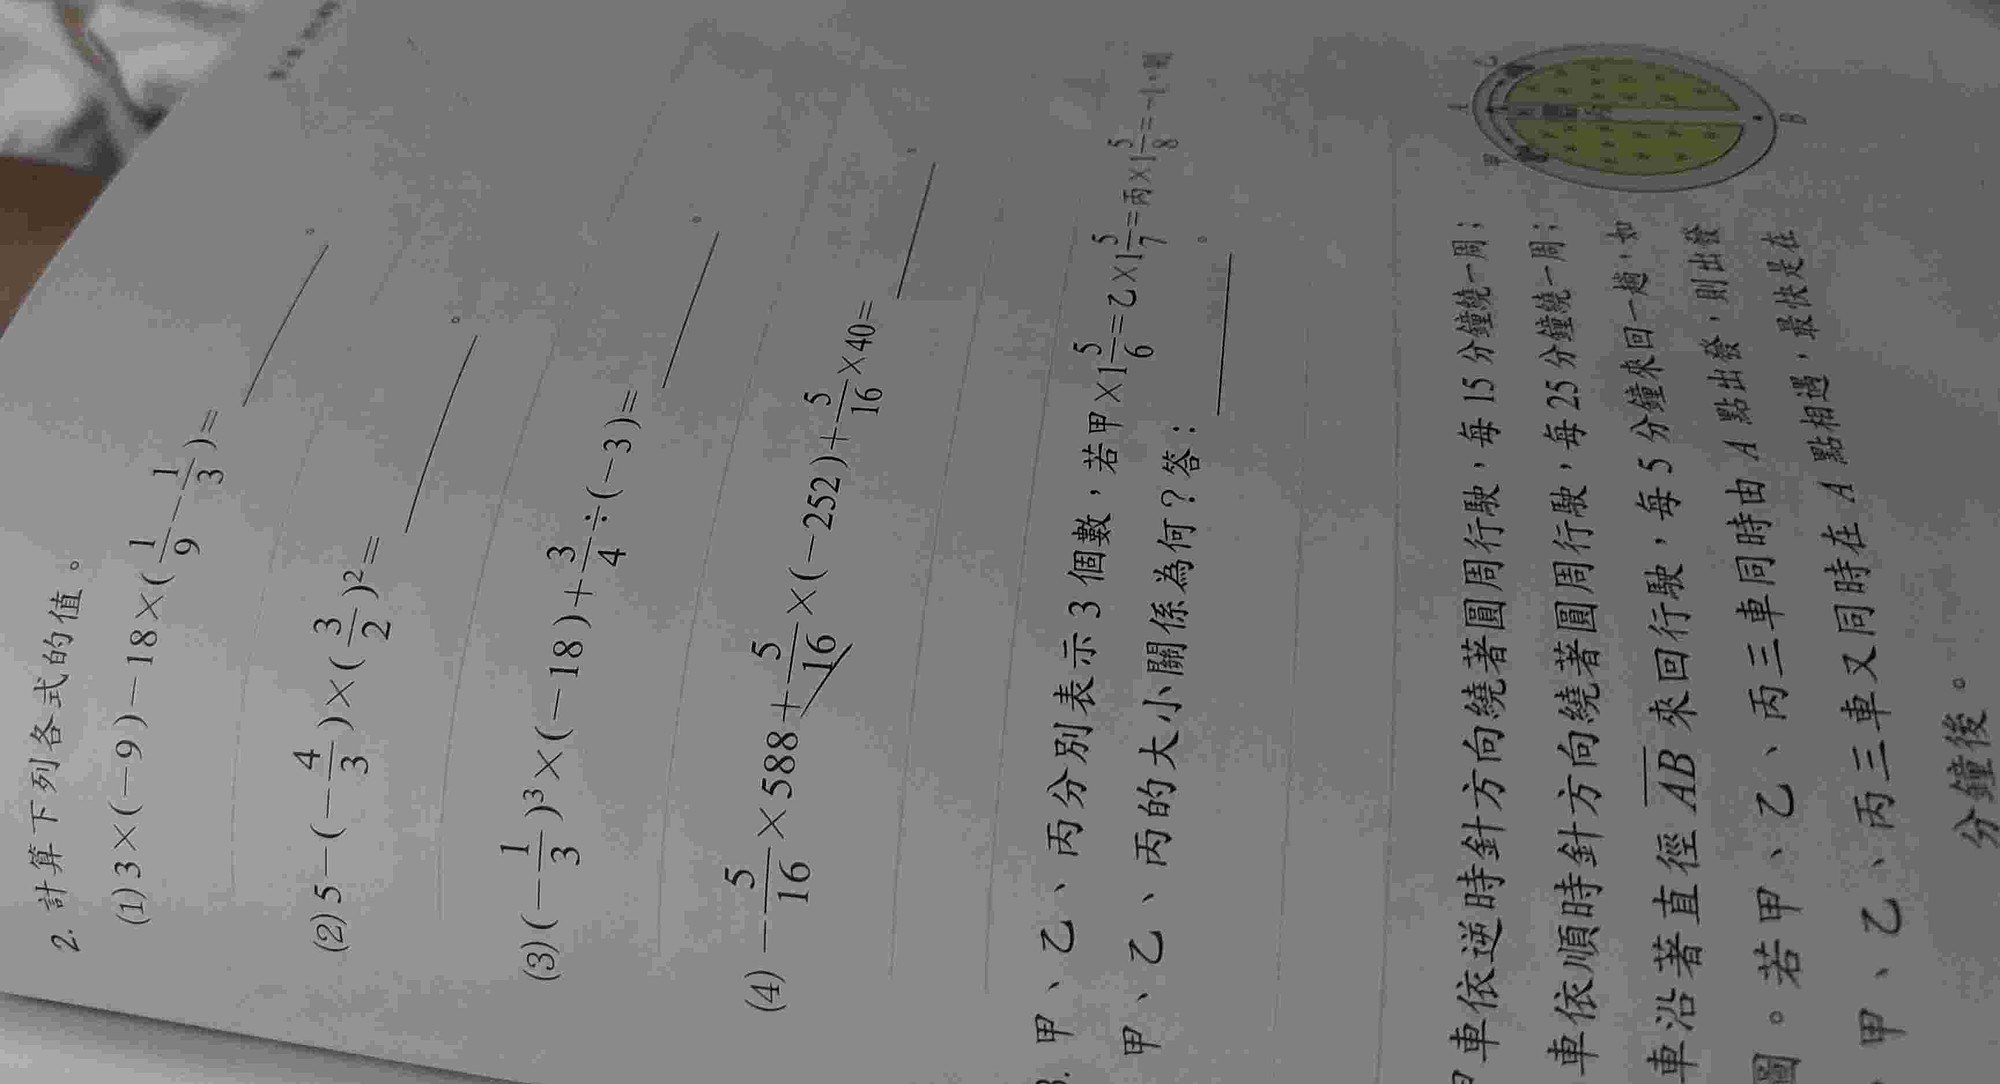 2. 計算下列各式的值。
(1) 3×(−9)−18×(1/9−1/3)= ＿＿＿。
(2) 5−(−4/3)×(3/2)²= ＿＿＿。
(3) (−1/3)³×(−18)+3/4÷(−3)= ＿＿＿。
(4) −5/16×588+5/16×(−252)+5/16×40= ＿＿＿。
甲、乙、丙分別表示 3 個數，若甲×1 5/6=乙×1 5/7=丙×1 5/8=−1，則
甲、乙、丙的大小關係為何？答：＿＿＿。
車依逆時針方向繞著圓周行駛，每 15 分鐘繞一周；
車依順時針方向繞著圓周行駛，每 25 分鐘繞一周；
車沿著直徑 AB 來回行駛，每 5 分鐘來回一趟，如
圖。若甲、乙、丙三車同時由 A 點出發，則出發
甲、乙、丙三車又同時在 A 點相遇，最快是在
分鐘後。
A
甲
B